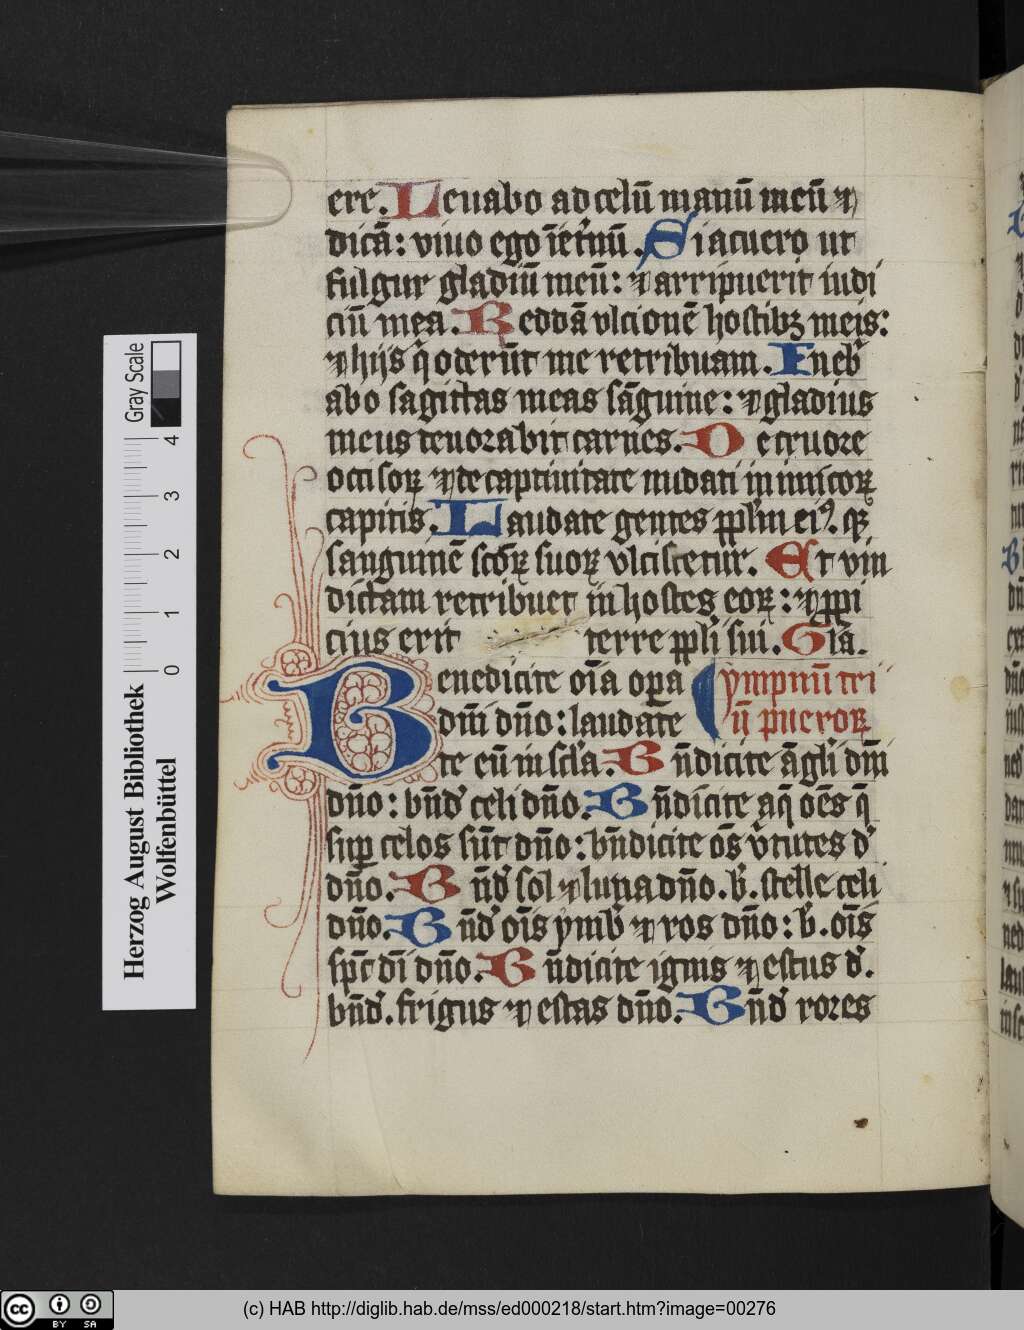 ere. Leuabo ad celū manū meū ⁊
dicā: viuo ego īet̾nū. Si acuero ut
fulgur gladiū meū: ⁊ arripuerit iudi
ciū mea. Reddā vlcionē hostibꝫ meis:
⁊ hijs q̇ oderūt me retribuam. Inebᷣ
abo sagittas meas sāguine: ⁊ gladius
meus deuorabit carnes. De cruore
occisoꝝ ⁊ de captiuitate nudati inimicoꝝ
capitis. Laudate gentes ꝓplm̄ eiꝰ. qꝛ
sanguinē sc̄oꝝ suoꝝ vlciscetur. Et vin
dictam retribuet in hostes eoꝝ: ⁊ ꝓpi
cius erit terre ꝓpli sui. Gl̄a.
Benedicite oīa oꝑa ymnū tri
dn̄i dn̄o: laudate ū pueroꝝ
te eū in scl̄a. Bn̄dicite āgli dn̄i
dn̄o: bn̄dᷣ celi dn̄o. Bn̄dicite aq̄ oēs q̄
suꝑ celos sūt dn̄o: bn̄dicite oēs v̾tutes dᷣ
dn̄o. Bn̄dᷣ sol ⁊ luna dn̄o. bᷣ. stelle celi
dn̄o. Bn̄dᷣ oīs ymbᷣ ⁊ ros dn̄o: b. oīs
sp̄c dī dn̄o. Bn̄dicite ignis ⁊ estus dᷣ.
bn̄dᷣ. frigus ⁊ estas dn̄o. Bn̄dᷣ rores
Herzog August Bibliothek
Wolfenbüttel
Gray Scale
0 1 2 3 4
cc BY SA
(c) HAB http://diglib.hab.de/mss/ed000218/start.htm?image=00276